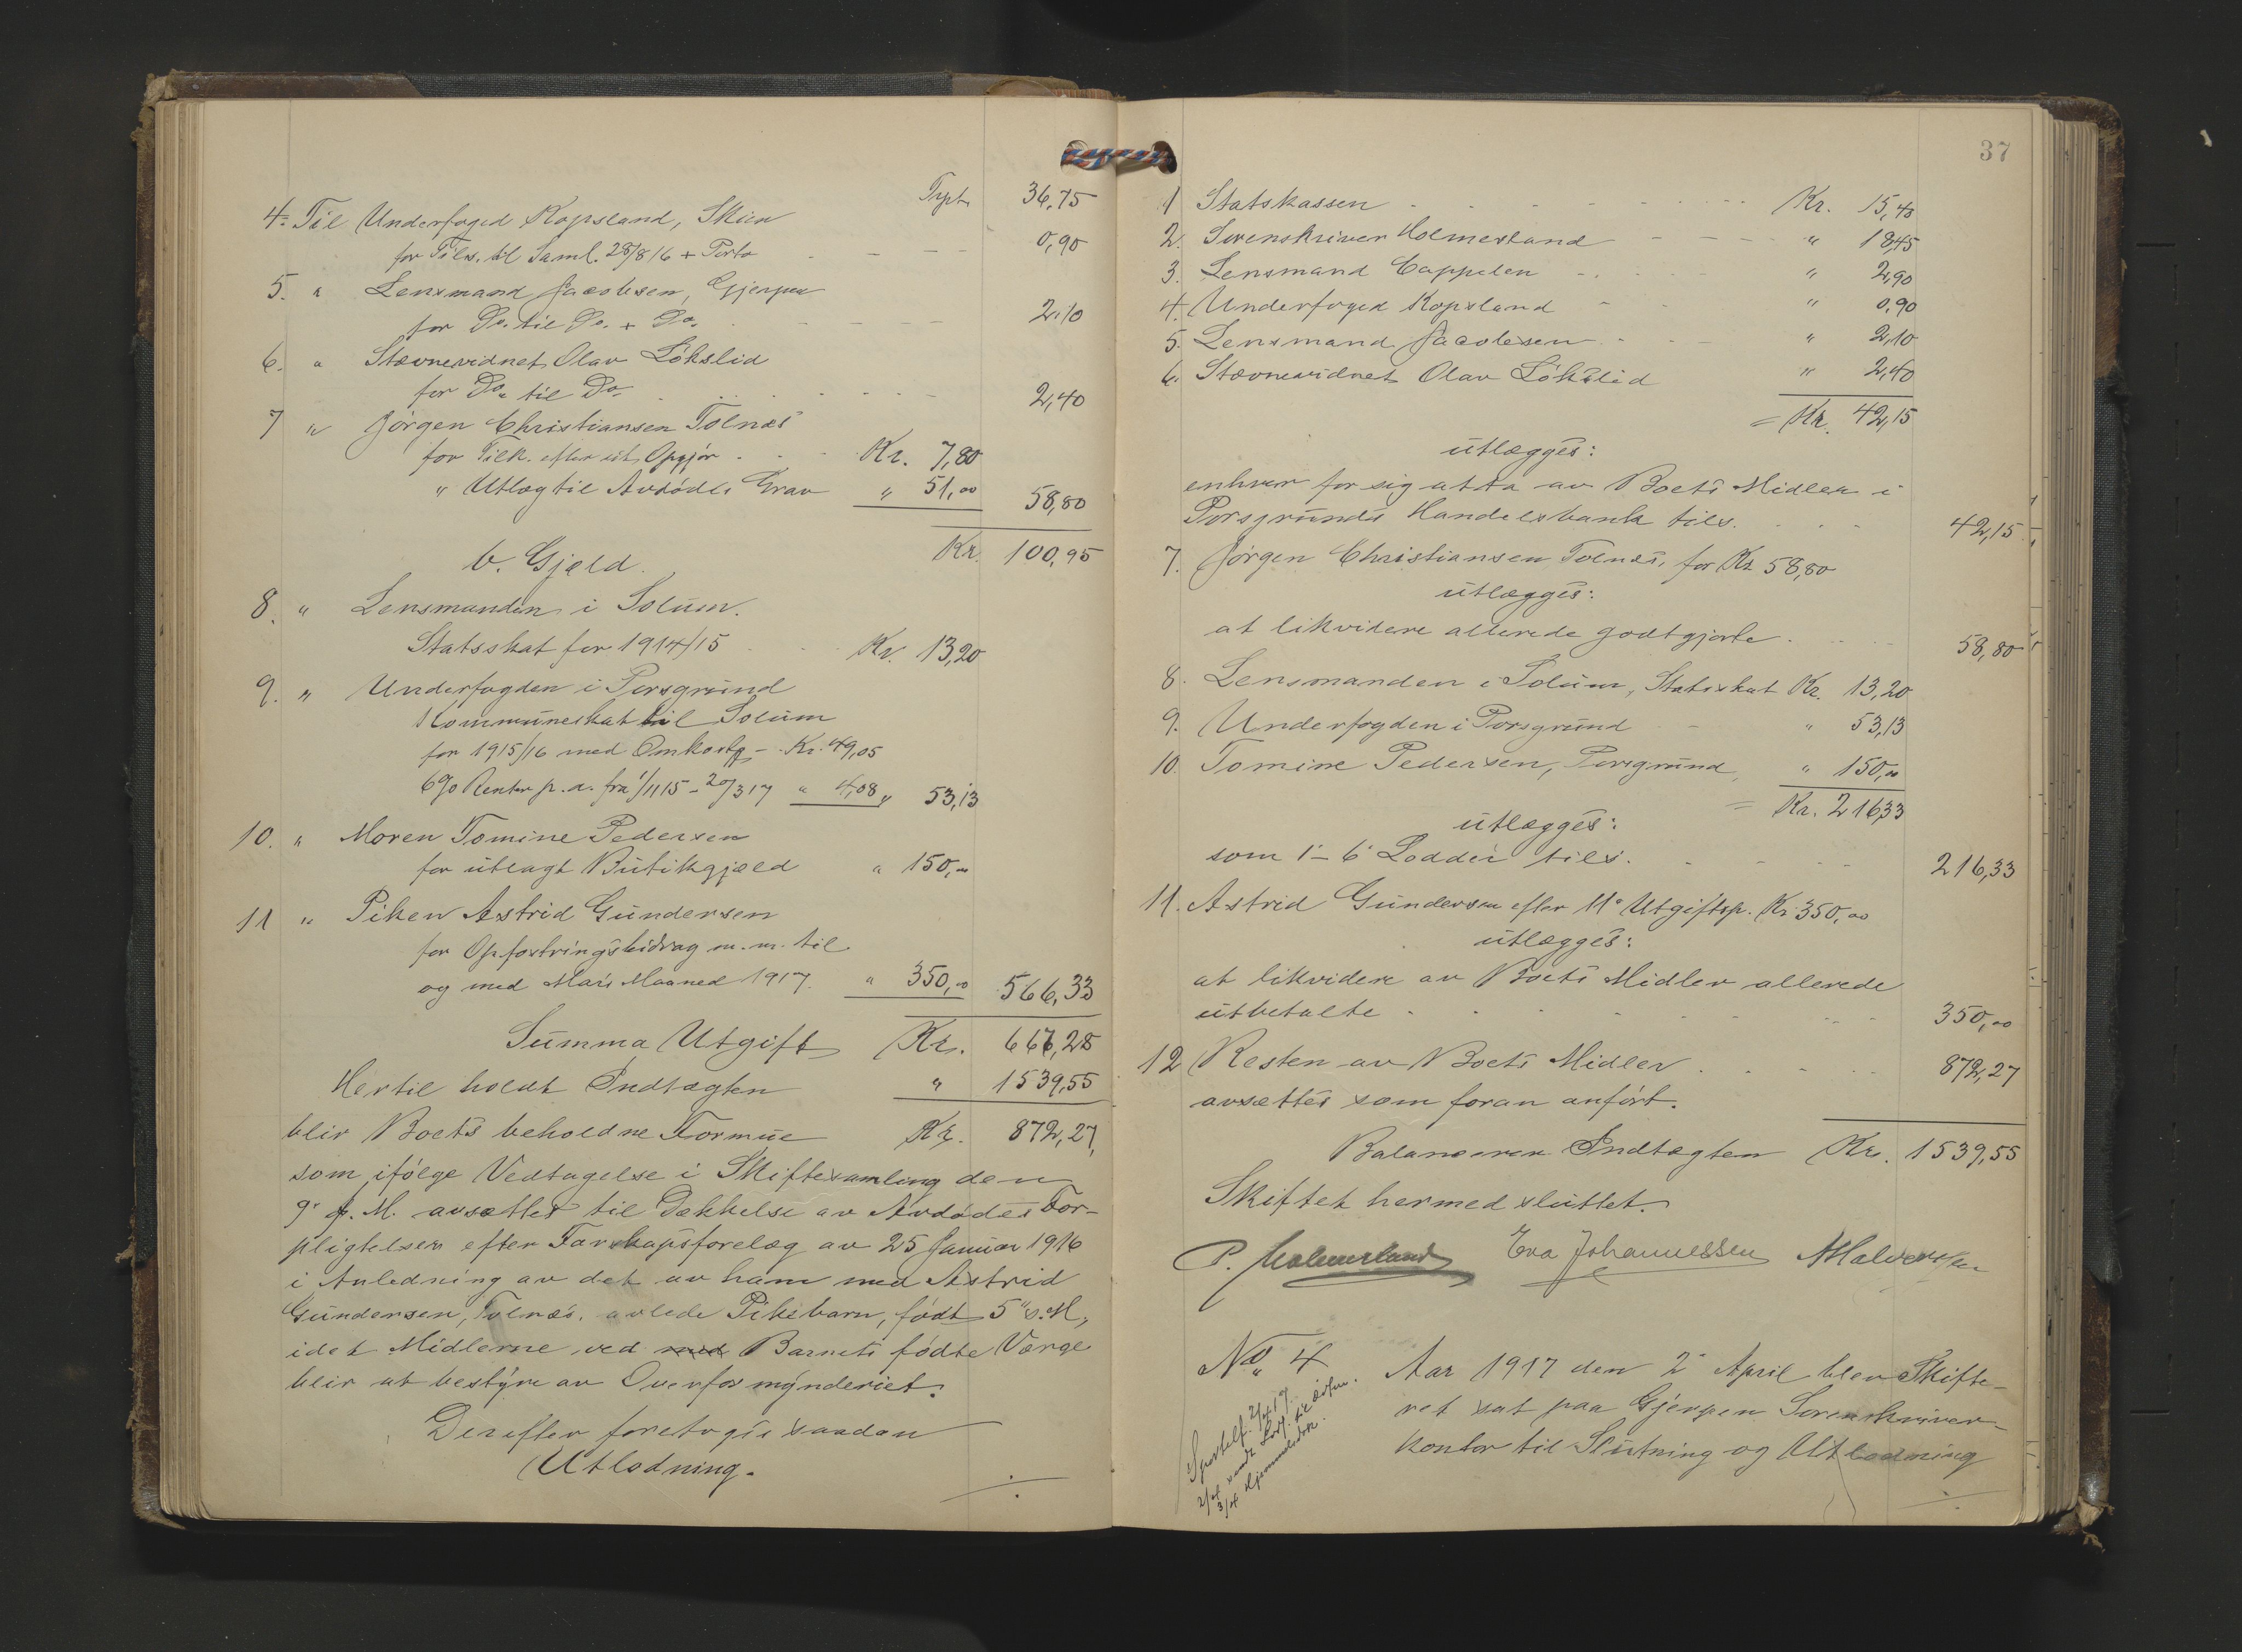 Trpt. 36,75
4. Til Underfoged Kopsland, Skien
for Tilsr. til Saml. 28/8 16 + Porto - - 0,90
5. " Lensmand Jacobsen, Gjerpen
for Do. til Do. + Do. - - - - 2,10
6. " Stævnevidnet Olav Lökslid
for Do. til Do. - - - 2,40
7 " Jörgen Christiansen Tolnæs
for Tilk. efter sit Opgjör - - Kr. 7,80
" Utlæg til Avdödes Grav " 51,00 58,80
Kr. 100,95
b. Gjæld.
8. " Lensmanden i Solum.
Statsskat for 1914/15 - - Kr. 13,20
9. " Underfogden i Porsgrund
Kommuneskat til Solum
for 1915/16 med Omkostg - Kr. 49,05
6% Renter p. a. fra 1/11 15 - 20/3 17 " 4,08 " 53,13
10. " Moren Tomine Pedersen
for utlagt Butikgjæld " 150,00
11 " Piken Astrid Gundersen
for Opfostringsbidrag m. m. til
og med Mars Maaned 1917. " 350,00 566,33
Summa Utgift Kr. 667,28
Hertil holdt Indtægten " 1539,55
blir Boets beholdne Formue Kr. 872,27,
som ifölge Vedtagelse i Skiftesamling den
9' f. M. avsættes til Dækkelse av Avdödes For-
pligtelser efter Farskapsforelæg av 25 Januar 1916
i Anledning av det av ham med Astrid
Gundersen, Tolnæs, avlede Pikebarn, födt 5" s. M.,
idet Midlerne ved med Barnets födte Værge
blir at bestyre av Overformynderiet.
Derefter foretoges saadan
Utlodning.
37
1 Statskassen - - - - - Kr. 15,40
2. Sorenskriver Holmesland - - - " 18,45
3. Lensmand Cappelen - - " 2,90
4. Underfoged Kopsland - - " 0,90
5. Lensmand Jacobsen - - - " 2,10
6. Stævnevidnet Olav Lökslid " 2,40
= Kr. 42,15
utlægges:
enhver for sig at ta av Boets Midler i
Porsgrunds Handelsbank tils. - - - 42,15
7. Jörgen Christiansen Tolnæs, for Kr. 58,80
utlægges:
at likvidere allerede godtgjorte - - - 58,80
8. Lensmanden i Solum, Statsskat Kr. 13,20
9. Underfogden i Porsgrund - " 53,13
10. Tomine Pedersen, Porsgrund, " 150,00
= Kr. 216,33
utlægges:
som 1'- 6' Lodder tils. - - - 216,33
11. Astrid Gundersen efter 11' Utgiftsp. Kr. 350,00
utlægges:
at likvidere av Boets Midler allerede
utbetalte - - - - - 350,00
12 Resten av Boets Midler - - - - 872,27
avsættes som foran anfört.
Balancerer Indtægten Kr. 1539,55
Skiftet hermed sluttet.
P. Holmesland Eva Johannessen
No. 4 Aar 1917 den 2' April blev Skifte-
ret sat paa Gjerpen Sorenskriver-
kontor til Slutning og Utlodning
Sportelf. 2/4 17.